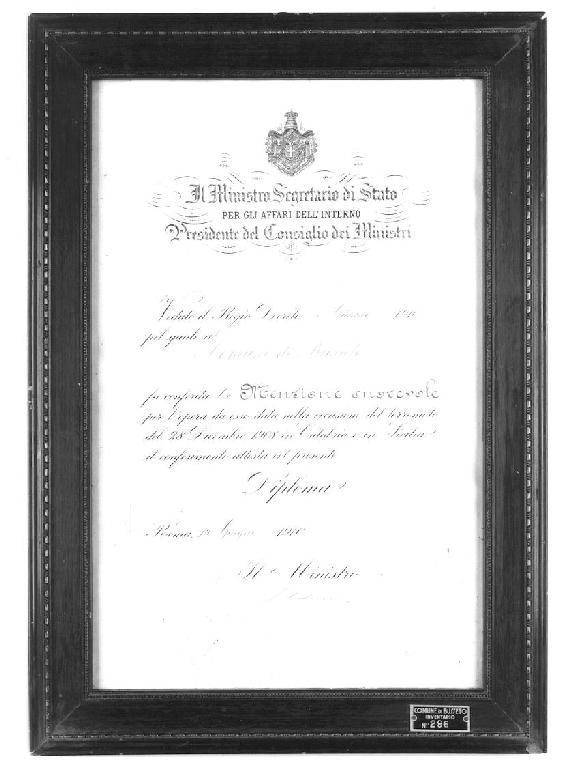 Il Ministro Segretario di Stato
PER GLI AFFARI DELL'INTERNO
Presidente del Consiglio dei Ministri
Veduto il Regio Decreto 1910
pel quale al
Comune di
fu conferita la Menzione onorevole
per l'opera da esso data nella occasione del terremoto
del 28 Dicembre 1908 in Calabria e in Sicilia
il conferimento attesta col presente
Diploma
Roma, Giugno 1910
Il Ministro
COMUNE DI BUSSETO
INVENTARIO
N° 296